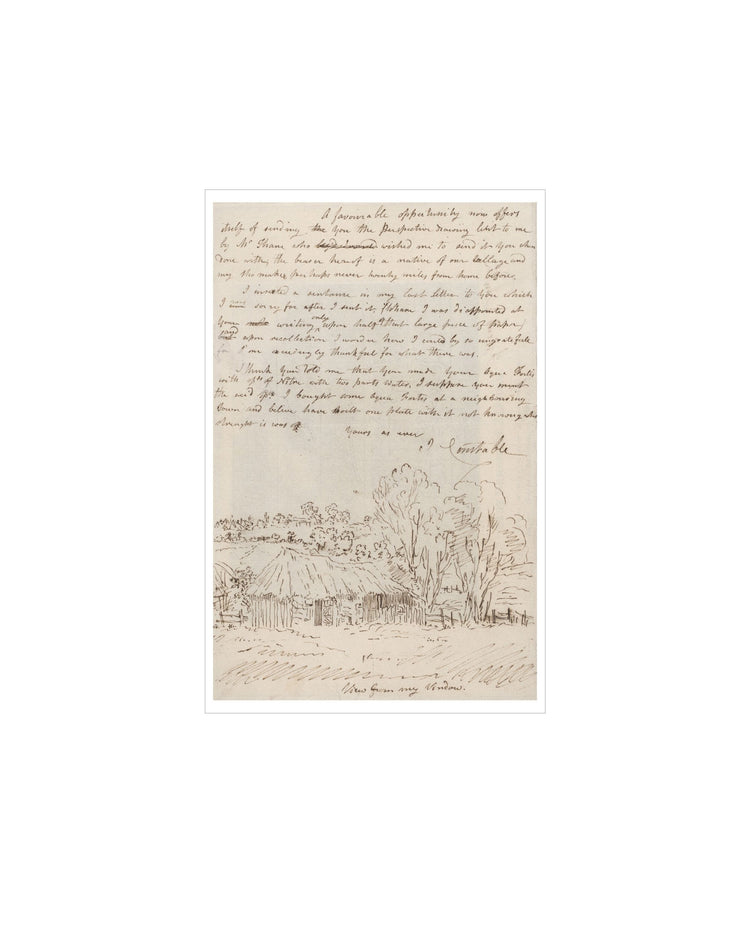 A favourable oppertunity now offers
itself of sending you the Perspective drawing lent to me
by Mr Thane who wished me to send it you when
done with, the bearer hearof is a native of our village and
may tho makes perhaps never twenty miles from home before.
I inserted a sentence in my last letter to you which
I was sorry for after I sent it, I was disappointed at
your writing only upon half that large piece of Paper,
and but upon recollection I wonder how I could by so ungratefull
for I am exceedingly thankful for what there was.
I think you told me that you made your Aqua Fortis
with of Nitre with two parts water, I suppose you ment
the acid I bought some Aqua Fortes at a neighbouring
town and believe have one plate with it not knowing what
strenght is was of
Yours as ever
J Constable
View from my Window.